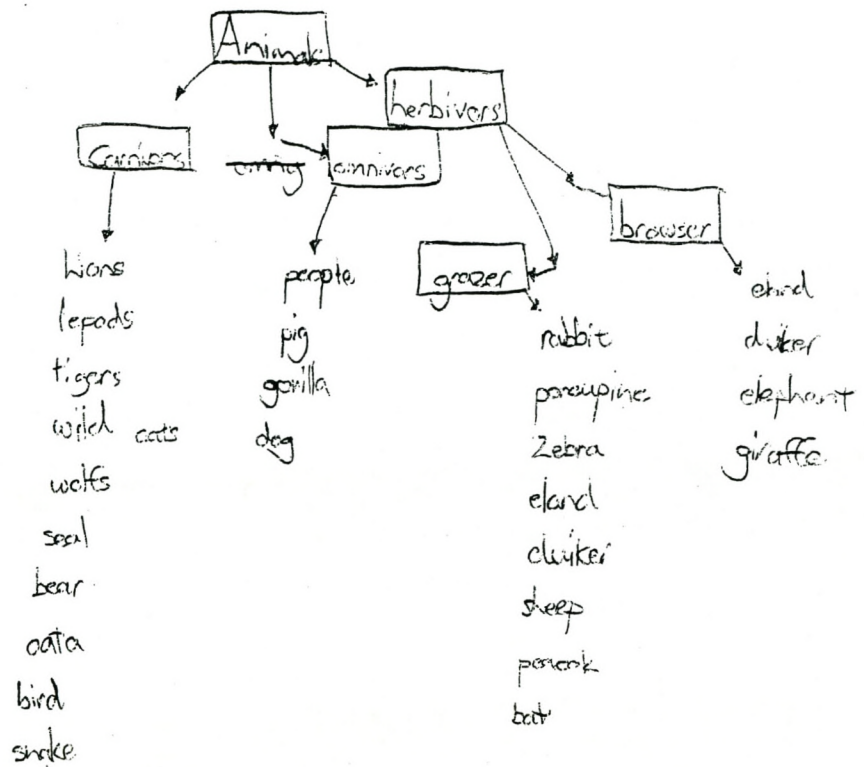 Animals
herbivors
Carnivors
omnivors
browser
grazer
Lions
lepods
tigers
wild cats
wolfs
seal
bear
bird
snake
people
pig
gorilla
dog
rabbit
porcupines
Zebra
eland
duiker
sheep
bat
eland
duiker
elephant
giraffe